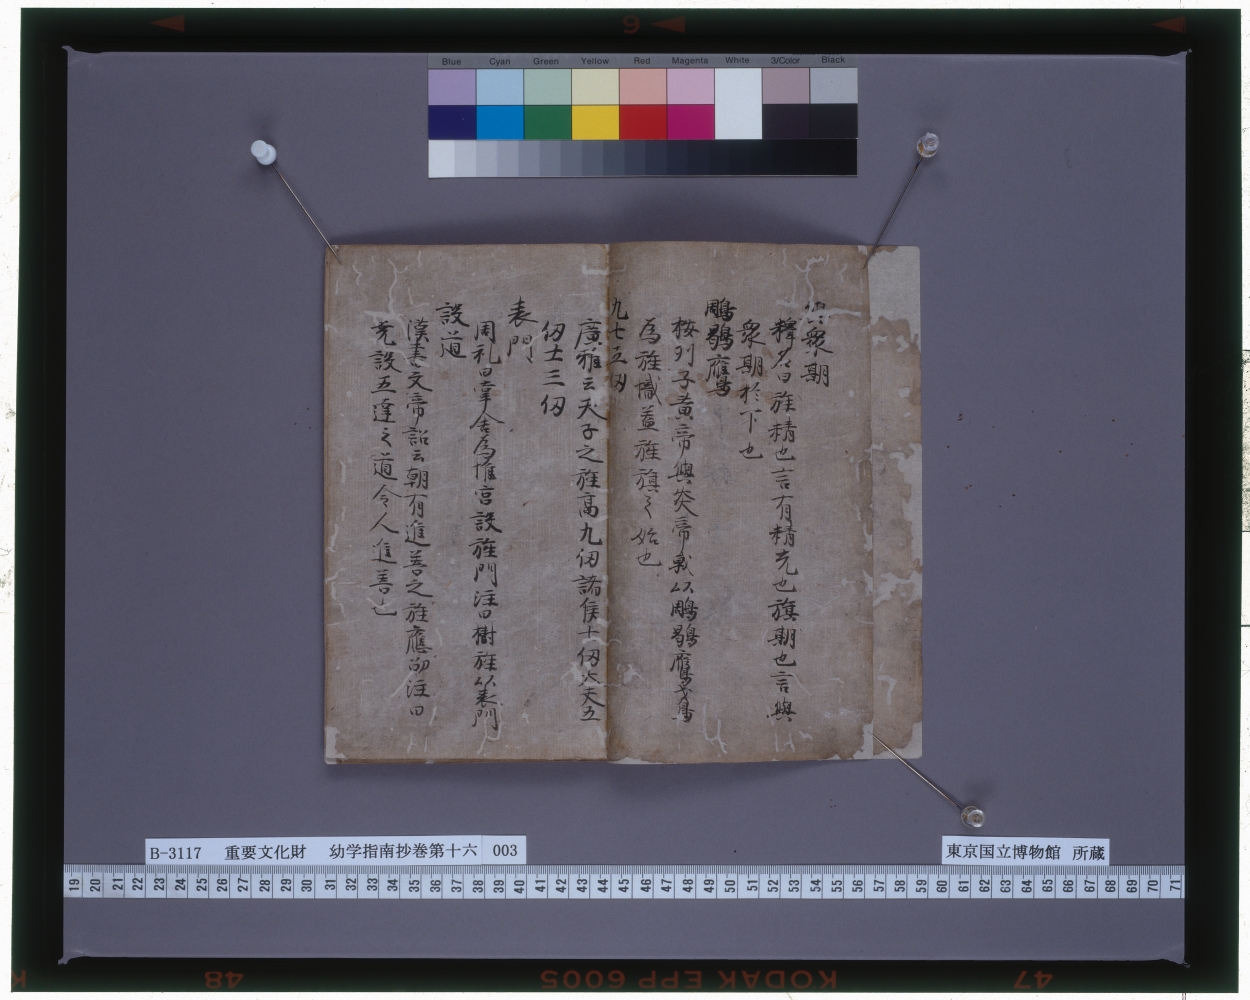 Blue Cyan Green Yellow Red Magenta White 3/Color Black
與衆期
釋名曰旌精也言有精光也旗期也言與
衆期於下也
鵰鶡鷹鳶
桉列子黄帝與炎帝戰以鵰鶡鷹鳶
為旌幟蓋旌旗之始也
九七五仞
廣雅云天子之旌高九仞諸侯十仞大夫五
仞士三仞
表門
周礼曰掌舍為帷宮設旌門注曰樹旌以表門
設道
漢書文帝詔云朝有進善之旌應劭注曰
堯設五達之道令人進善也
B-3117 重要文化財 幼学指南抄巻第十六 003
東京国立博物館 所蔵
19 20 21 22 23 24 25 26 27 28 29 30 31 32 33 34 35 36 37 38 39 40 41 42 43 44 45 46 47 48 49 50 51 52 53 54 55 56 57 58 59 60 61 62 63 64 65 66 67 68 69 70 71
48 KODAK EPP 6005 47